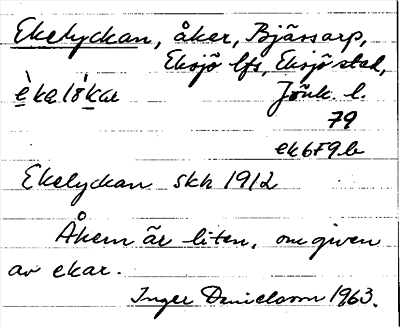 Ekelyckan, åker, Bjässarp,
Eksjö lfs, Eksjö stad,
Jönk. l.
79
ek6f9b
Ekelyckan skh 1912
Åkern är liten, omgiven
av ekar.
Inger Danielsson 1963.